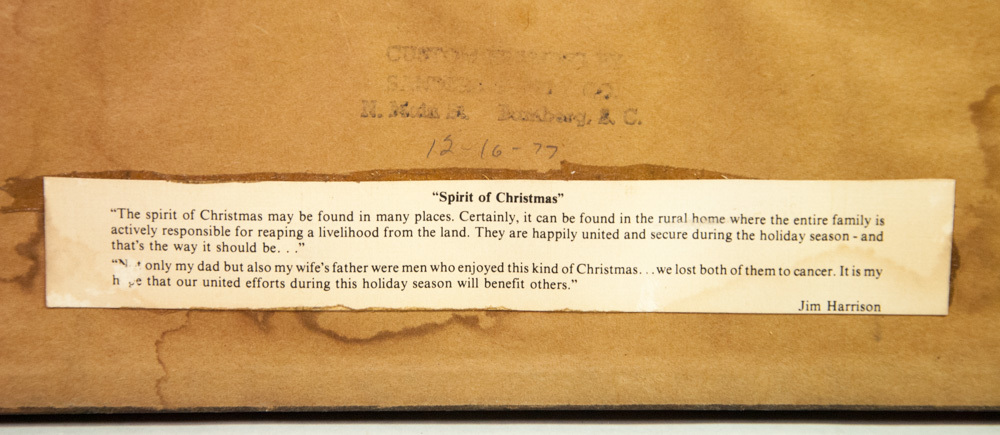 CUSTOM
N. Main St. Bamberg, S. C.
12-16-77
"Spirit of Christmas"
"The spirit of Christmas may be found in many places. Certainly, it can be found in the rural home where the entire family is
actively responsible for reaping a livelihood from the land. They are happily united and secure during the holiday season - and
that's the way it should be. . ."
"Not only my dad but also my wife's father were men who enjoyed this kind of Christmas. . . we lost both of them to cancer. It is my
hope that our united efforts during this holiday season will benefit others."
Jim Harrison